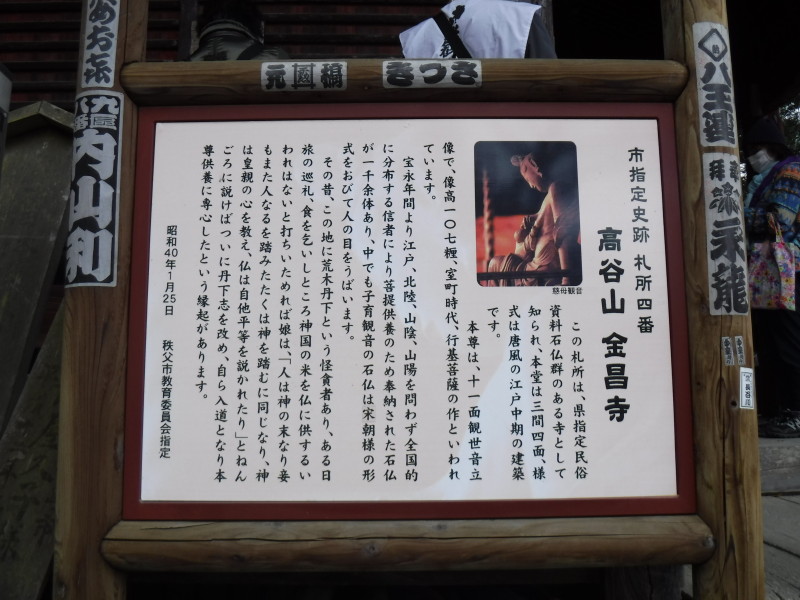 市指定史跡 札所四番
高谷山 金昌寺
この札所は、県指定民俗
資料石仏群のある寺として
知られ、本堂は三間四面、様
式は唐風の江戸中期の建築
です。
本尊は、十一面観世音立
像で、像高一〇七糎、室町時代、行基菩薩の作といわれ
ています。
宝永年間より江戸、北陸、山陰、山陽を問わず全国的
に分布する信者により菩提供養のため奉納された石仏
が一千余体あり、中でも子育観音の石仏は宋朝様の形
式をおびて人の目をうばいます。
その昔、この地に荒木丹下という怪貪者あり、ある日
旅の巡礼、食を乞いしところ神国の米を仏に供するい
われはないと打ちいためれば娘は、「人は神の末なり妾
もまた人なるを踏みたたくは神を踏むに同じなり、神
は皇親の心を教え、仏は自他平等を説かれたり」とねん
ごろに説けばついに丹下志を改め、自ら入道となり本
尊供養に専心したという縁起があります。
昭和40年1月25日 秩父市教育委員会指定
慈母観音
元 稿
きつさ
内山利
八王
永龍